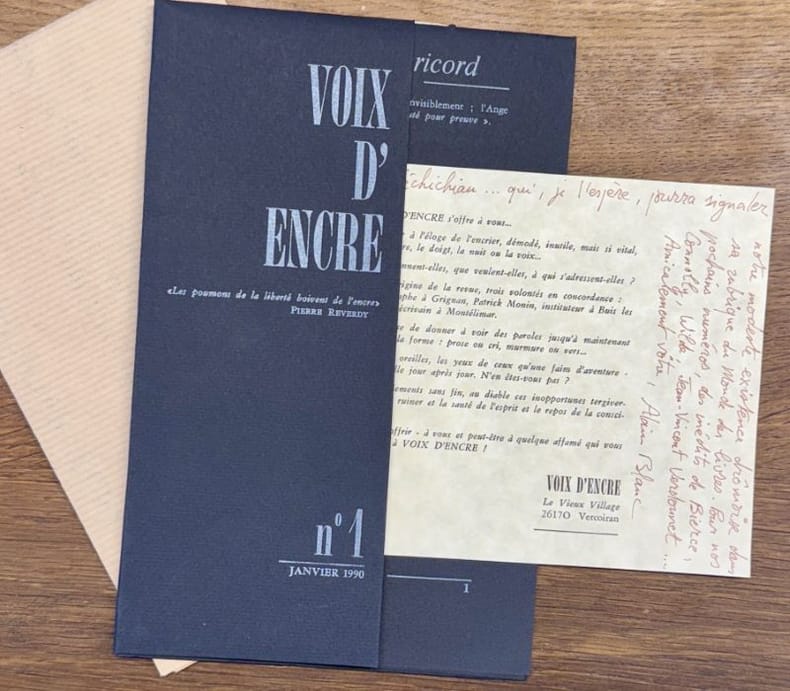 VOIX
D'
ENCRE
«Les poumons de la liberté boivent de l'encre»
PIERRE REVERDY
n° 1
JANVIER 1990
ricord
nvisiblement ; l'Ange
té pour preuve ».
1
échichian ... qui, je l'espère, pourra signaler
notre modeste existence drômoise dans
sa rubrique du Monde des livres. Pour nos
prochains numéros, des inédits de Bierce,
Connolly, Wilde, Jean-Vincent Verdonnet ...
Amicalement vôtre, Alain Blanc
D'ENCRE s'offre à vous...
à l'éloge de l'encrier, démodé, inutile, mais si vital,
re, le doigt, la nuit ou la voix...
nnent-elles, que veulent-elles, à qui s'adressent-elles ?
rigine de la revue, trois volontés en concordance :
phe à Grignan, Patrick Monin, instituteur à Buis les
écrivain à Montélimar.
se de donner à voir des paroles jusqu'à maintenant
la forme : prose ou cri, murmure ou vers...
oreilles, les yeux de ceux qu'une faim d'aventure -
lle jour après jour. N'en êtes-vous pas ?
ements sans fin, au diable ces inopportunes tergiver-
ruiner et la santé de l'esprit et le repos de la consci-
ffrir - à vous et peut-être à quelque affamé qui vous
à VOIX D'ENCRE !
VOIX D'ENCRE
Le Vieux Village
26170 Vercoiran